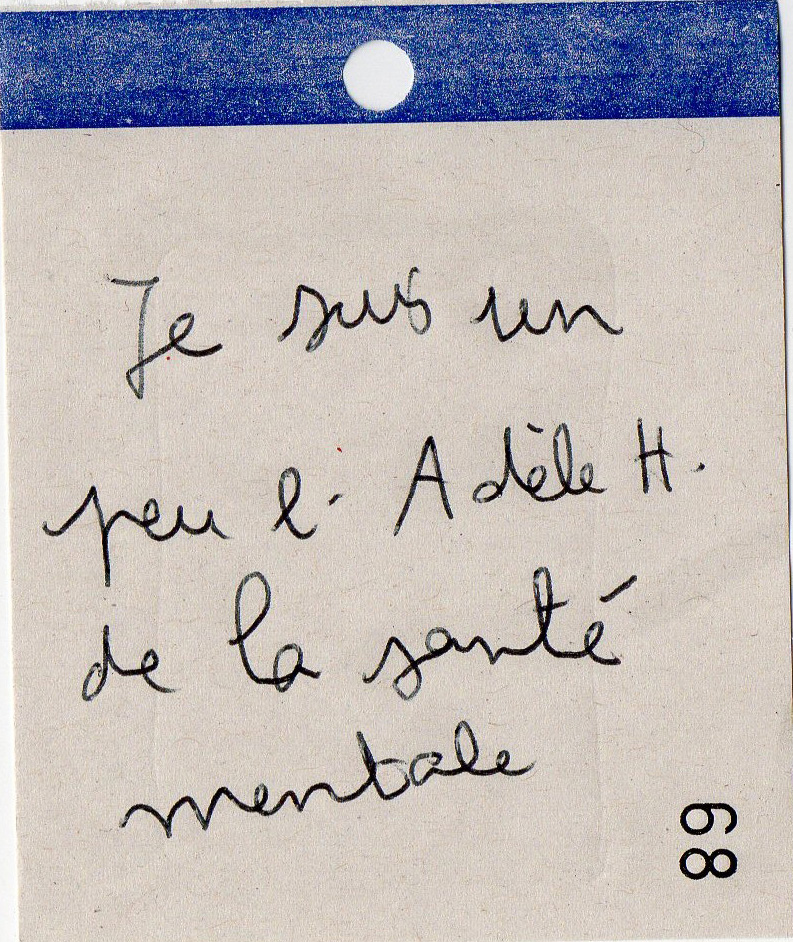 Je suis un
peu l'Adèle H.
de la santé
mentale
89